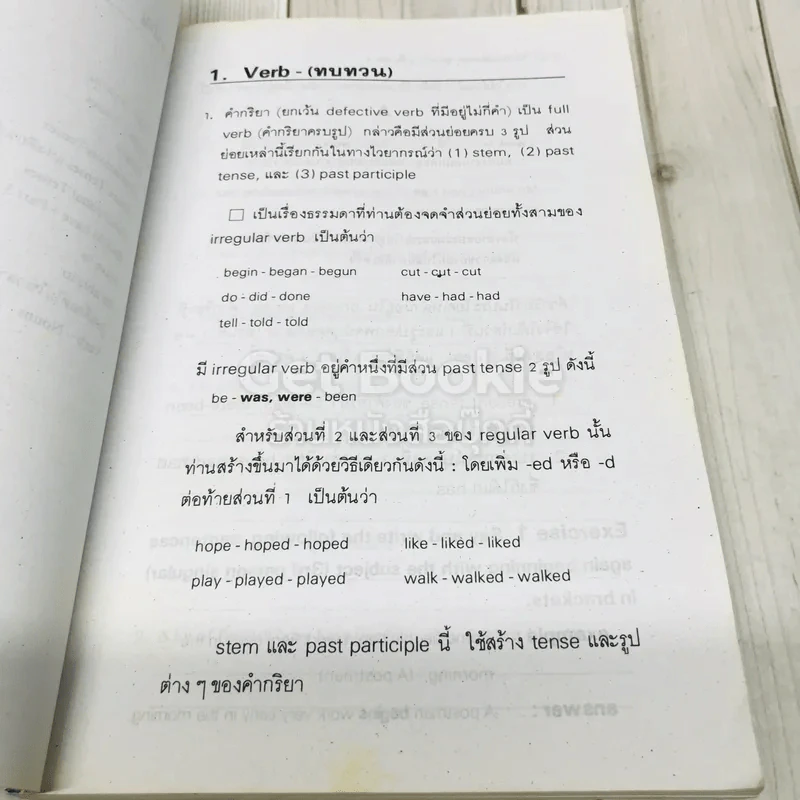 1. Verb - (ทบทวน)
1. คำกริยา (ยกเว้น defective verb ที่มีอยู่ไม่กี่คำ) เป็น full
verb (คำกริยาครบรูป) กล่าวคือมีส่วนย่อยครบ 3 รูป ส่วน
ย่อยเหล่านี้เรียกกันในทางไวยากรณ์ว่า (1) stem, (2) past
tense, และ (3) past participle
เป็นเรื่องธรรมดาที่ท่านต้องจดจำส่วนย่อยทั้งสามของ
irregular verb เป็นต้นว่า
begin - began - begun cut - cut - cut
do - did - done have - had - had
tell - told - told
มี irregular verb อยู่คำหนึ่งที่มีส่วน past tense 2 รูป ดังนี้
Get Bookie
be - was, were - been
ร้านหนังสือบุ๊คกี้
สำหรับส่วนที่ 2 และส่วนที่ 3 ของ regular verb นั้น
ท่านสร้างขึ้นมาได้ด้วยวิธีเดียวกันดังนี้ : โดยเพิ่ม -ed หรือ -d
ต่อท้ายส่วนที่ 1 เป็นต้นว่า
hope - hoped - hoped like - liked - liked
play - played - played walk - walked - walked
stem และ past participle นี้ ใช้สร้าง tense และรูป
ต่าง ๆ ของคำกริยา